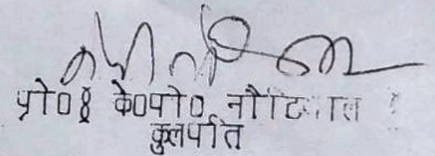 प्रो०४ के०पी० नौटियाल
कुलपति